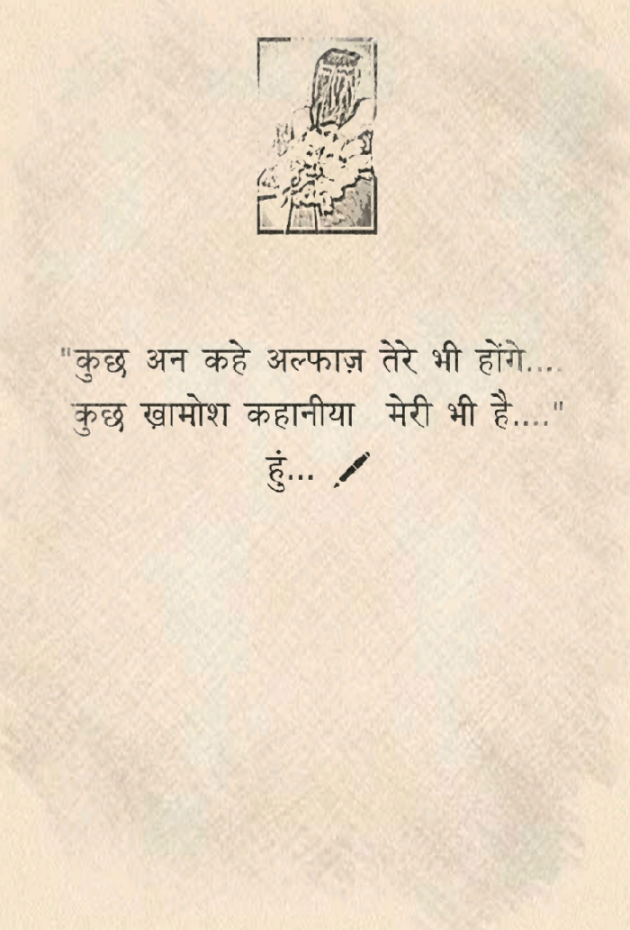 "कुछ अन कहे अल्फाज़ तेरे भी होंगे....
कुछ ख़ामोश कहानीया मेरी भी है...."
हुं...